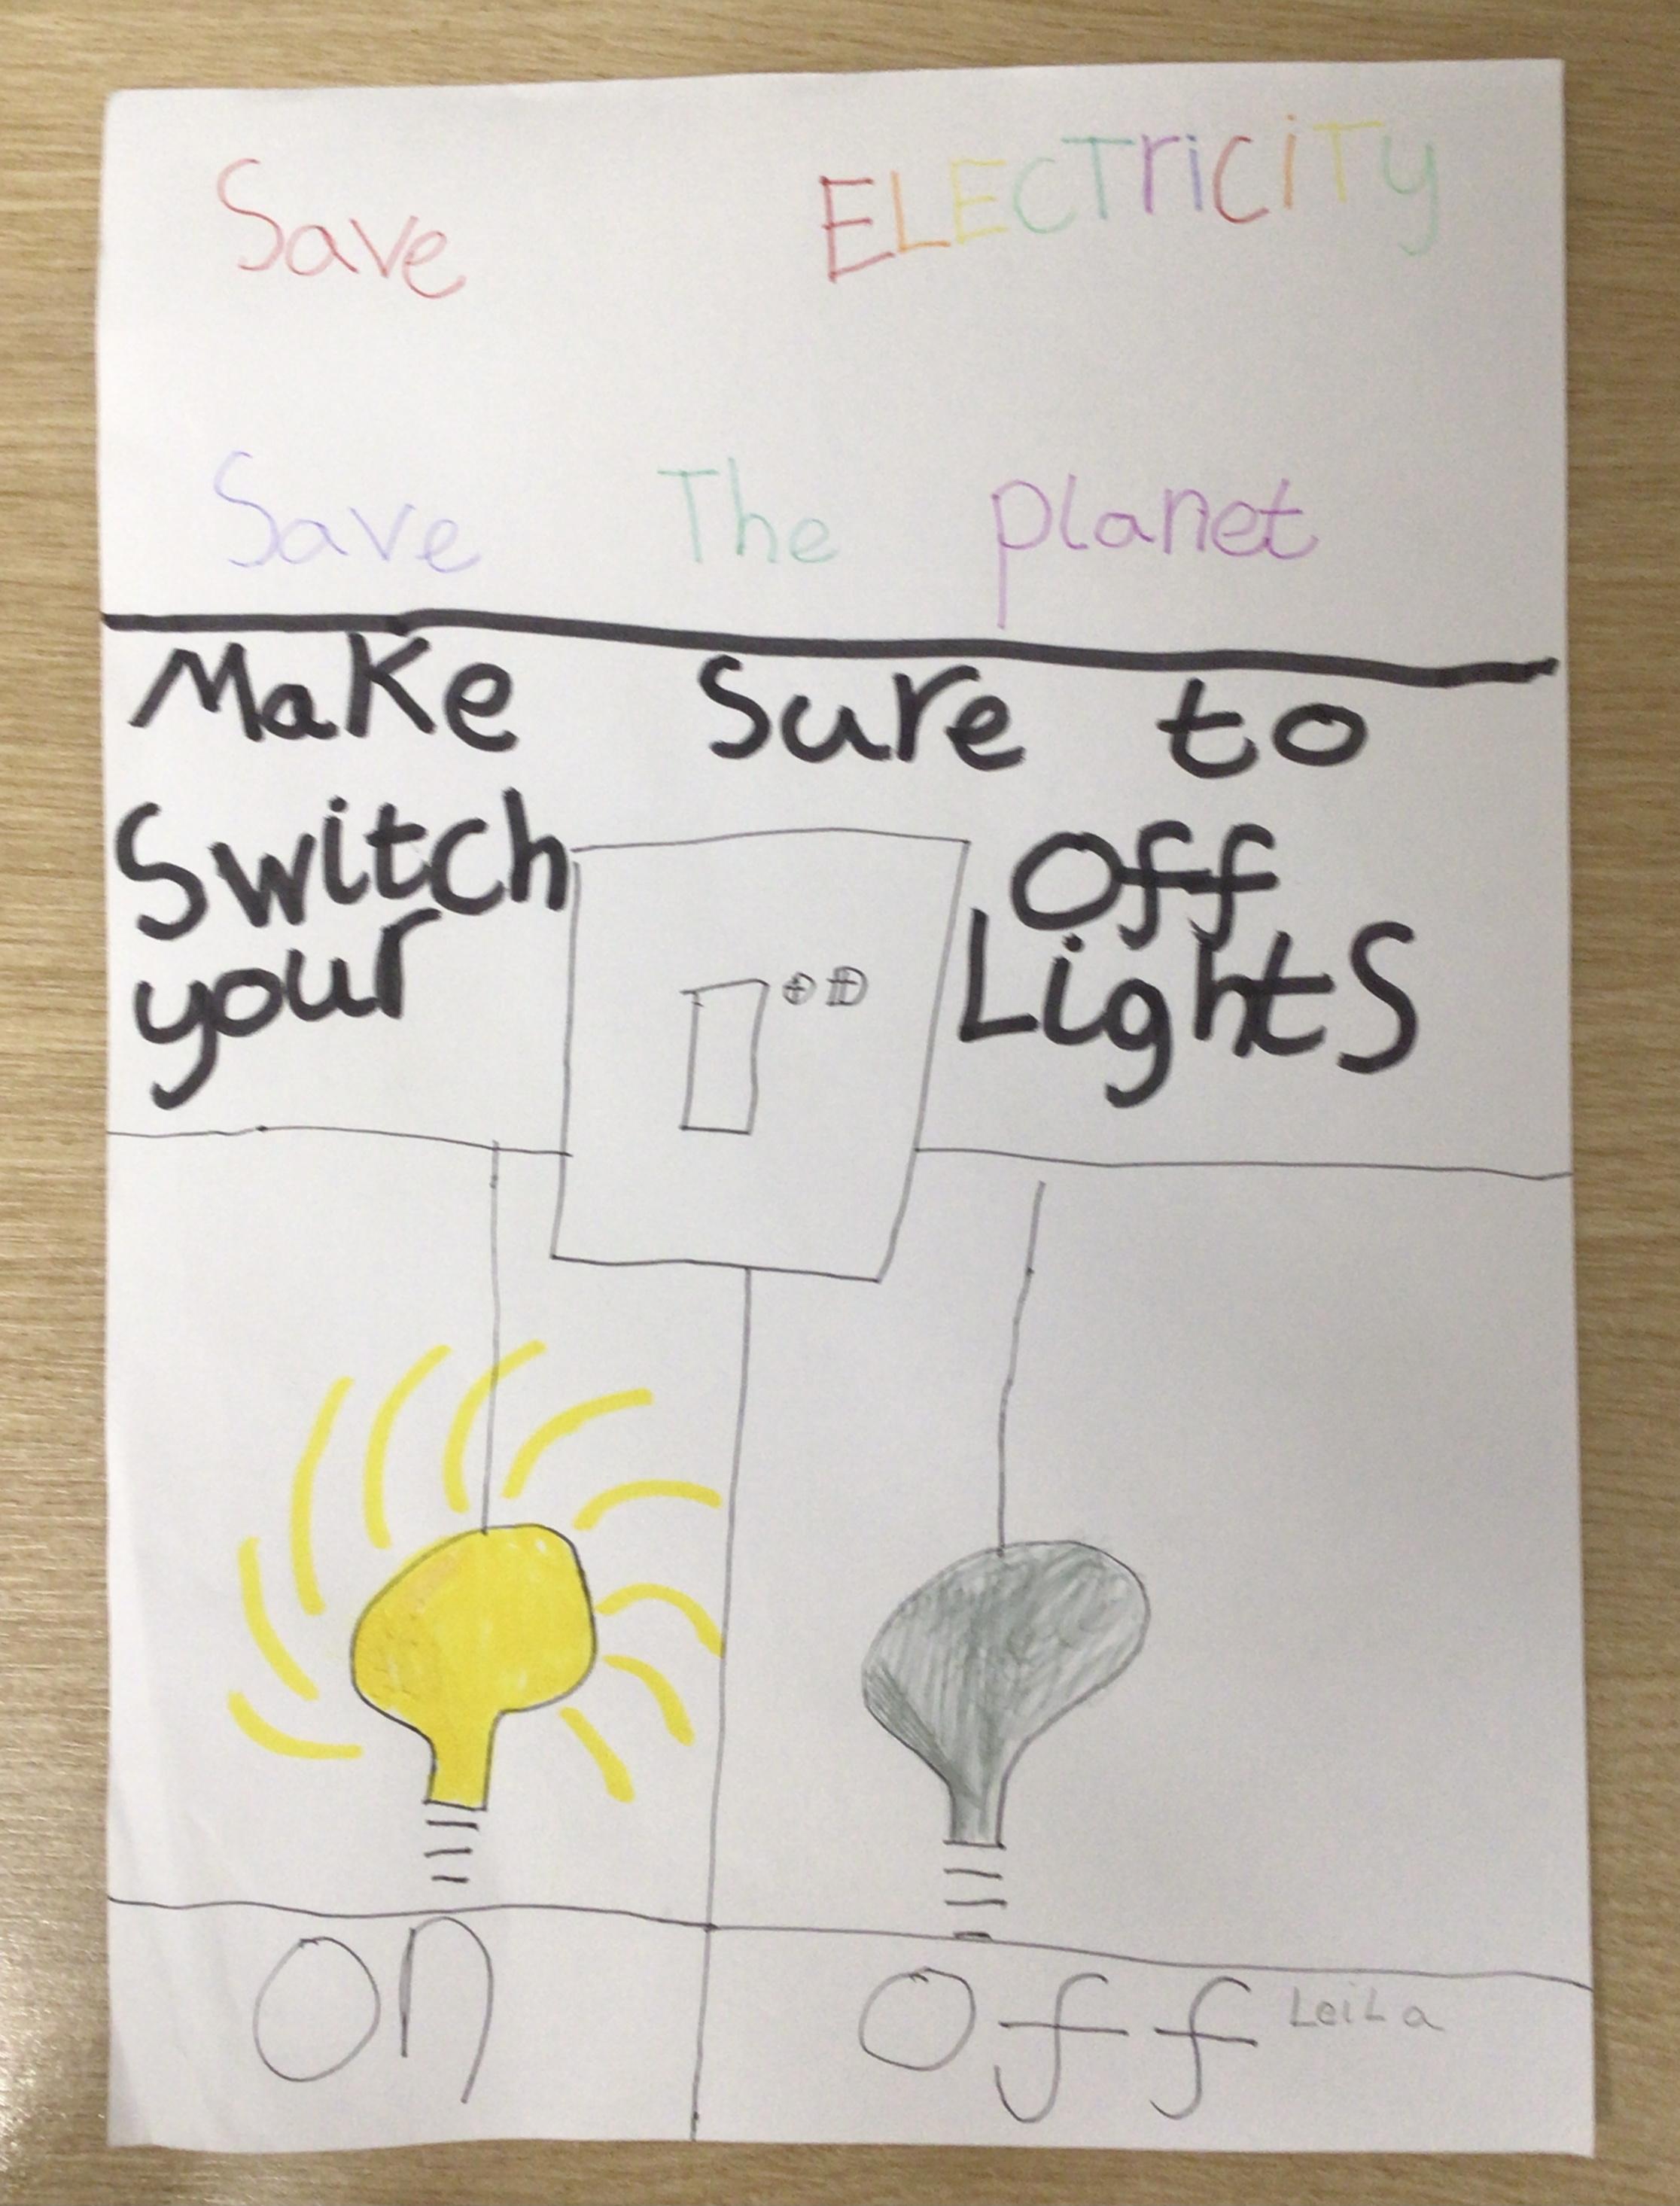 Save ELECTriCiTy
Save The planet
Make Sure to
Switch Off
your LightS
On
Off
LeiLa